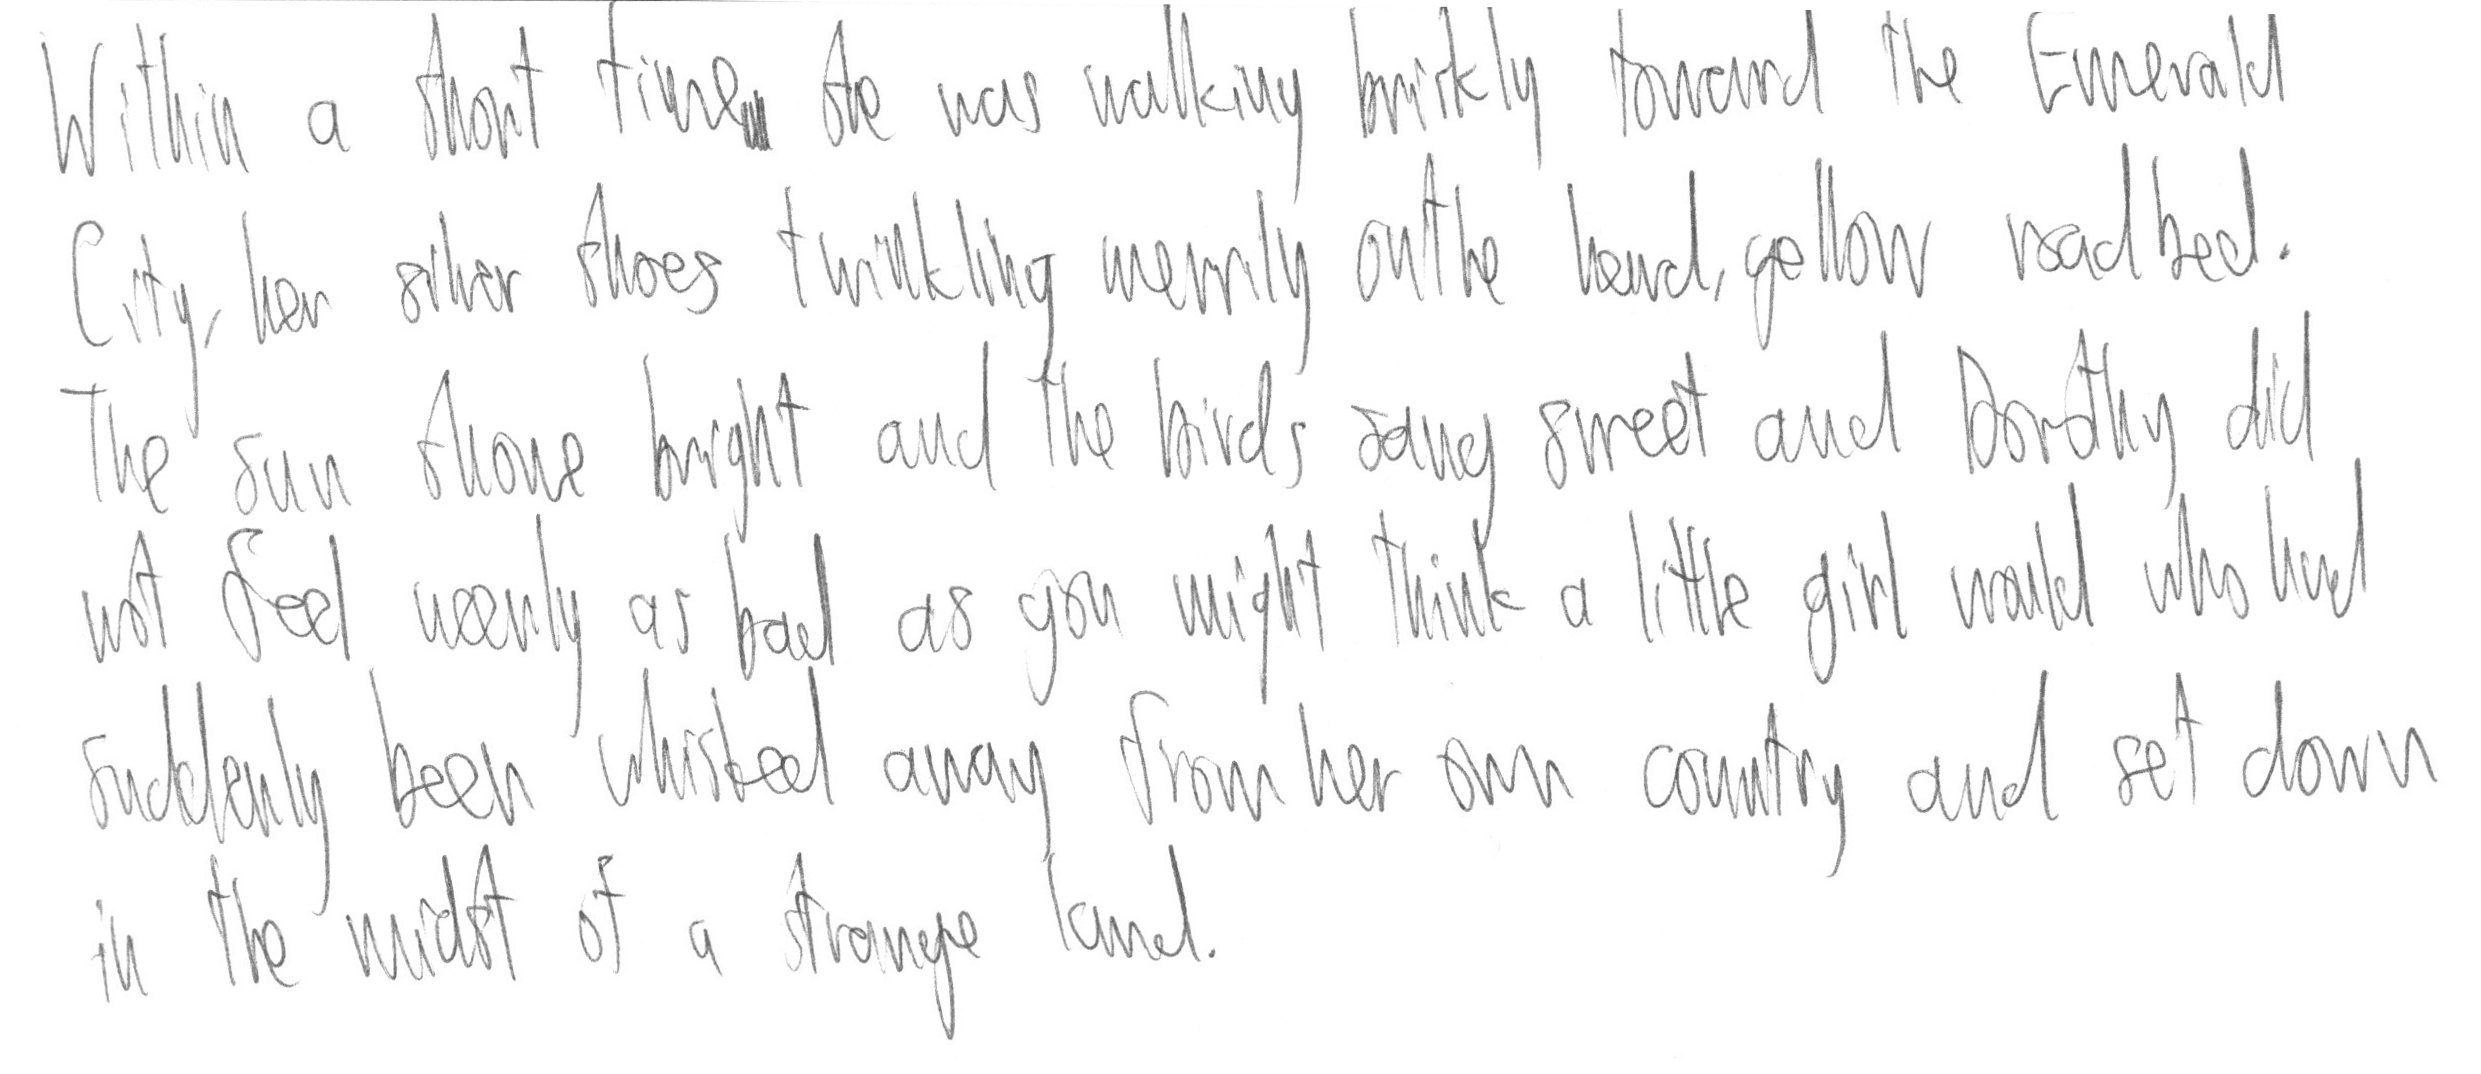 Within a short time she was walking briskly toward the Emerald
City, her silver shoes twinkling merrily on the hard, yellow roadbed.
The sun shone bright and the birds sang sweet and Dorothy did
not feel nearly as bad as you might think a little girl would who had
suddenly been whisked away from her own country and set down
in the midst of a strange land.